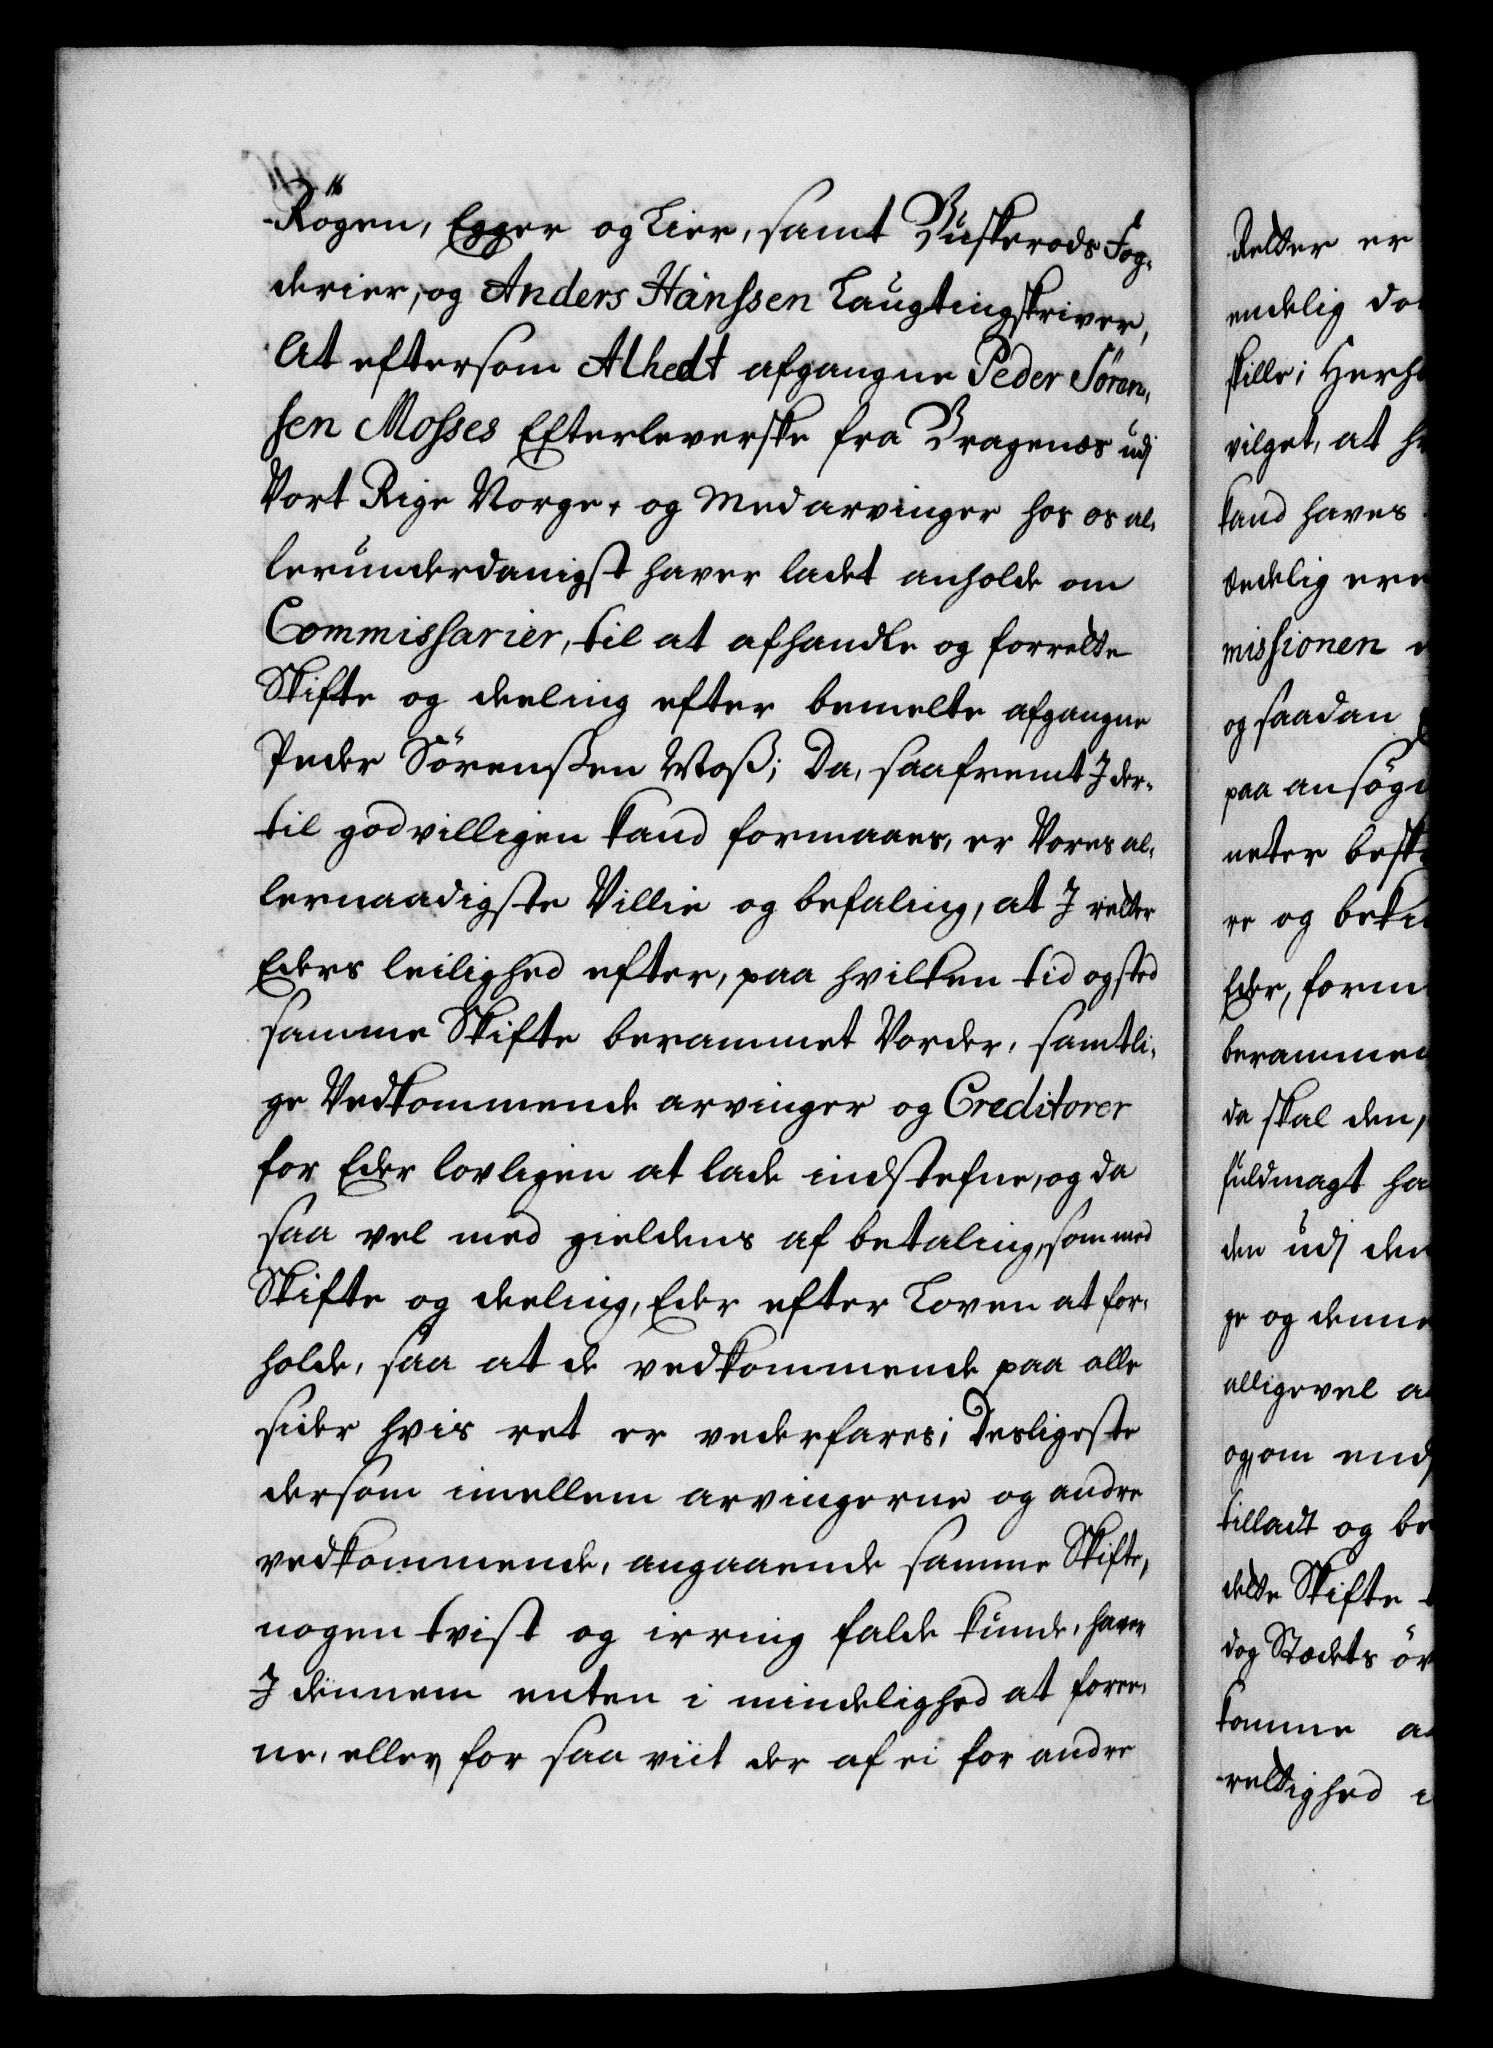 Rögen, Egger og Lier, samt Buskerods Fog-
derier, og Anders Hanssen Laugtingskriver,
At eftersom Alhedt afgangne Peder Sören-
sen Mosses Efterleverske fra Bragenæs udj
Vort Rige Norge, og Medarvinger hos os al-
lerunderdanigst haver ladet anholde om
Commissarier, til at afhandle og forrette
Skifte og deeling efter bemelte afgangne
Peder Sörenssen Moss; Da, saafremt I der-
til godvilligen kand formaaes, er Vores al-
lernaadigste Villie og befaling, at I retter
Eders leilighed efter, paa hvilken tid og sted
samme Skifte berammet Vorder, samtli-
ge Vedkommende arvinger og Creditorer
for Eder lovligen at lade indstefne, og da
saa vel med gieldens af betaling, som med
Skifte og deeling, Eder efter Loven at for-
holde, saa at de vedkommende paa alle
sider hvis ret er vederfares; Desligeste
dersom imellem arvingerne og andre
vedkommende, angaaende samme Skifte,
nogen tvist og irring falde kunde, haver
I dennem enten i mindelighed at foree-
ne, eller, for saa viit der af ei for andre
Retter er
endelig do
skille; Herh
vilget, at h
kand haves
endelig ere
missionen
og saadan
paa ansög
neter besk
re og bek
Eder, form
berammen
da skal den,
fuldmagt ha
den udj den
ge og denne
alligevel a
og, om end
tilladt og be
dette Skifte
dog Stædets öv
komme a
rettighed i